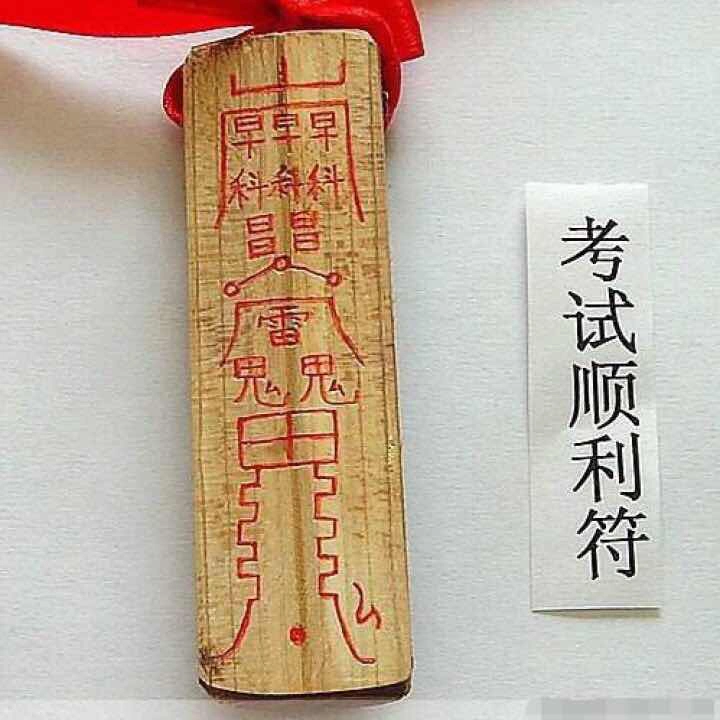 山
早早早
科科科
昌昌
雷
鬼鬼
考试顺利符